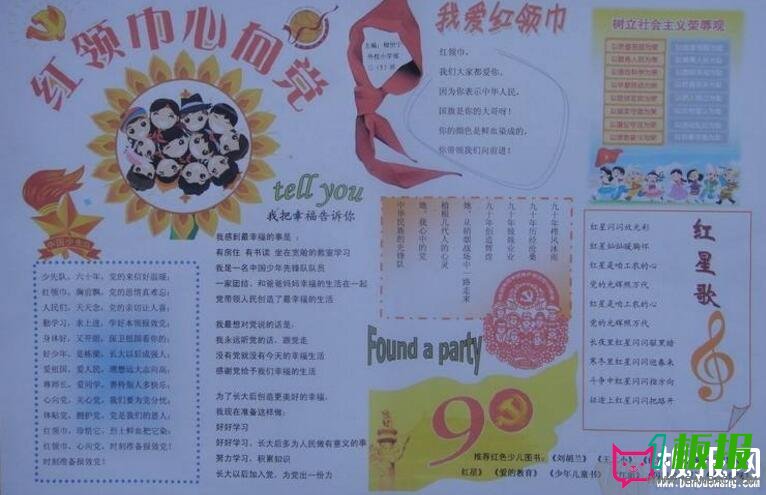 红领巾心向党
tell you
我把幸福告诉你
我感到最幸福的事是：
有房住 有书读 坐在宽敞的教室学习
我是一名中国少年先锋队队员
一家团结，和爸爸妈妈幸福的生活在一起
党带领人民创造了最幸福的生活
我最想对党说的话是：
我永远听党的话，跟党走
没有党就没有今天的幸福生活
感谢党给予我们幸福的生活
为了长大后创造更美好的幸福，
我现在准备这样做：
好好学习
好好学习，长大后多为人民做有意义的事
努力学习，积累知识
长大以后加入党，为党出一份力
少先队，六十年，党的来信好温暖；
红领巾，胸前飘，党的恩情真难忘；
人民们，天天念，党的亲切让人喜；
勤学习，求上进，学好本领报效党；
好少年，是栋梁，长大以后成强人；
爱祖国，爱人民，理想远大志向高；
心向党，关心党，我们要为党分忧；
体贴党，拥护党，党是我们的恩人；
红领巾，珍惜它，烈士鲜血把它染；
红领巾，心向党，时刻准备报效党！
时刻准备报效党！
我爱红领巾
红领巾，
我们大家都爱你，
因为你表示中华人民，
国旗是你的大哥呀！
你的颜色是鲜血染成的，
你带领我们向前进！
树立社会主义荣辱观
九十年栉风沐雨
九十年历经沧桑
九十年兢兢业业
九十年创造辉煌
她，从硝烟战场中一路走来
她，我心中的党
中华民族的先锋队
Found a party
90
推荐红色少儿图书：《刘胡兰》
《爱的教育》 《少年儿童书》
红星歌
红星闪闪放光彩
红星灿灿暖胸怀
红星是咱工农的心
党的光辉照万代
红星是咱工农的心
党的光辉照万代
长夜里红星闪闪驱黑暗
寒冬里红星闪闪迎春来
斗争中红星闪闪指方向
征途上红星闪闪把路开
板报网